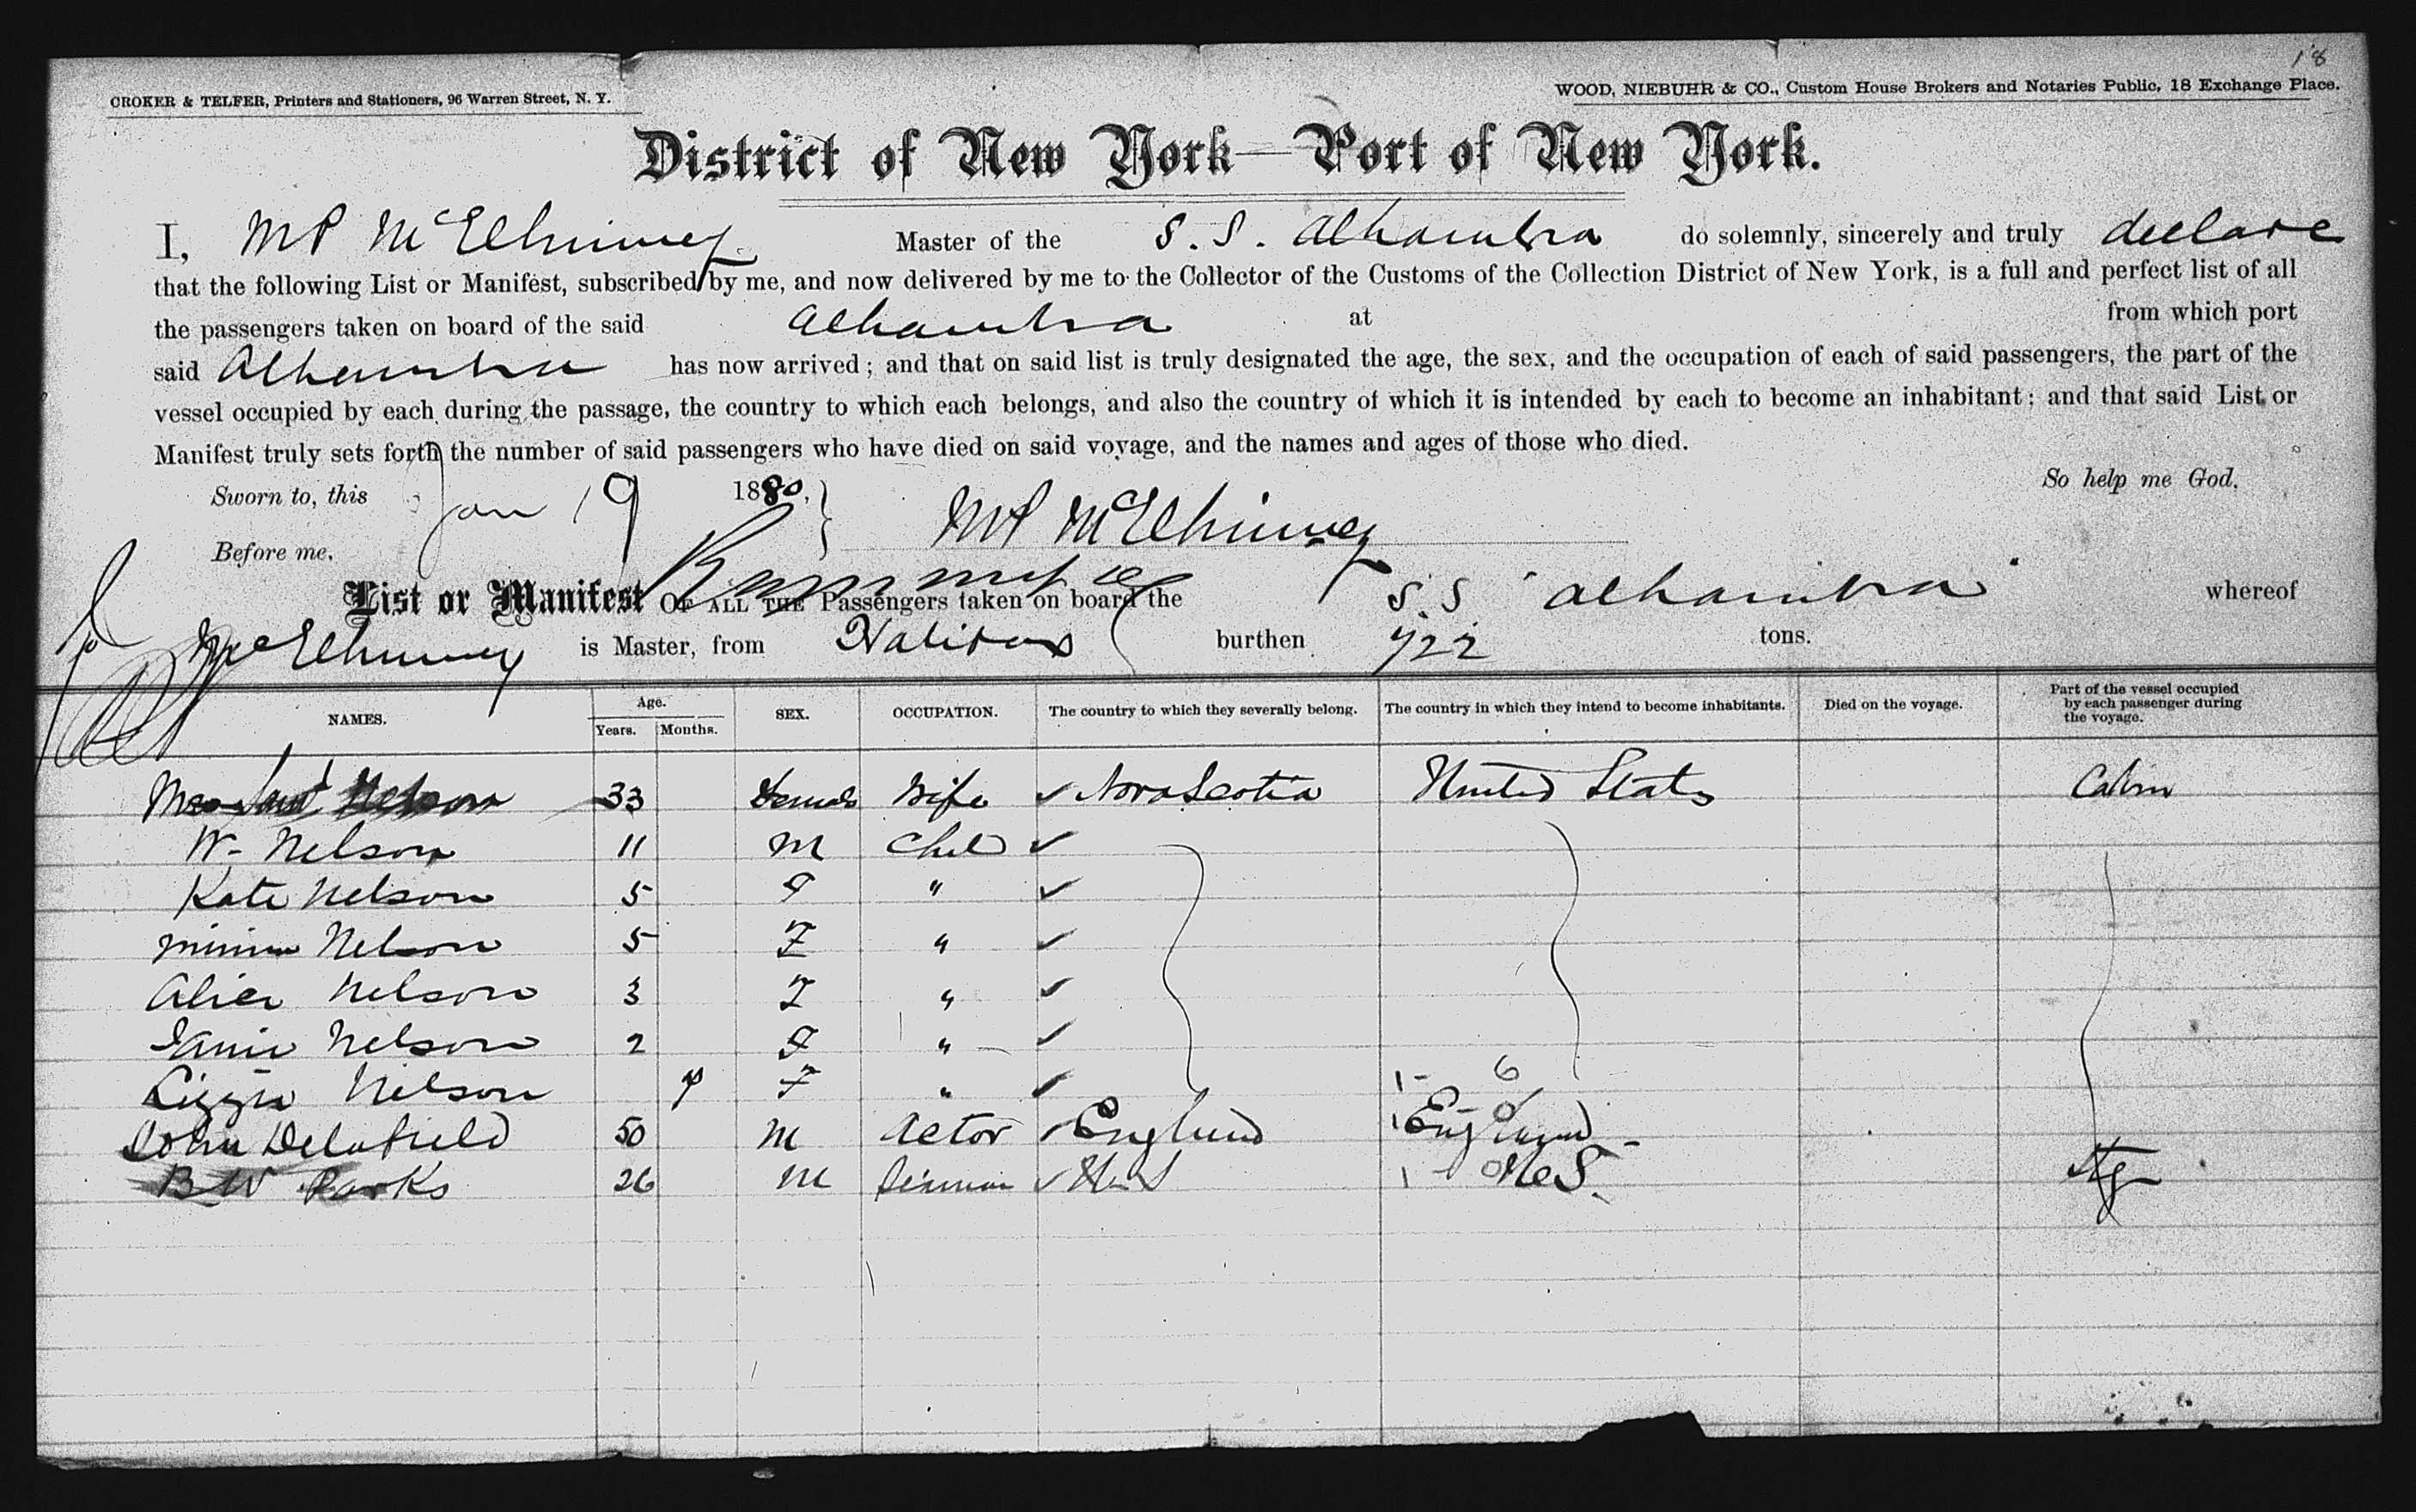 18
CROKER & TELFER, Printers and Stationers, 96 Warren Street, N. Y.
WOOD, NIEBUHR & CO., Custom House Brokers and Notaries Public, 18 Exchange Place.
District of New York—Port of New York.
I, MP McElhinney Master of the S. S. Alhambra do solemnly, sincerely and truly declare
that the following List or Manifest, subscribed by me, and now delivered by me to the Collector of the Customs of the Collection District of New York, is a full and perfect list of all
the passengers taken on board of the said Alhambra at from which port
said Alhambra has now arrived; and that on said list is truly designated the age, the sex, and the occupation of each of said passengers, the part of the
vessel occupied by each during the passage, the country to which each belongs, and also the country of which it is intended by each to become an inhabitant; and that said List or
Manifest truly sets forth the number of said passengers who have died on said voyage, and the names and ages of those who died.
So help me God.
Sworn to, this Jan 19 1880, MP McElhinney
Before me.
List or Manifest OF ALL THE Passengers taken on board the S.S "Alhambra" whereof
McElhinney is Master, from Halifax burthen 722 tons.
NAMES. Age. Years. Months. SEX. OCCUPATION. The country to which they severally belong. The country in which they intend to become inhabitants. Died on the voyage. Part of the vessel occupied by each passenger during the voyage.
Mrs Nelson 33 Female Wife ✓ Nova Scotia United States Cabin
W- Nelson 11 M Chil ✓
Kate Nelson 5 F " ✓
Minnie Nelson 5 F " ✓
Alice Nelson 3 F " ✓
Janie Nelson 2 F " ✓
Lizzie Nelson F " ✓ 1- 6
John Delafield 50 M Actor ✓ England England
BW Parks 26 M ✓